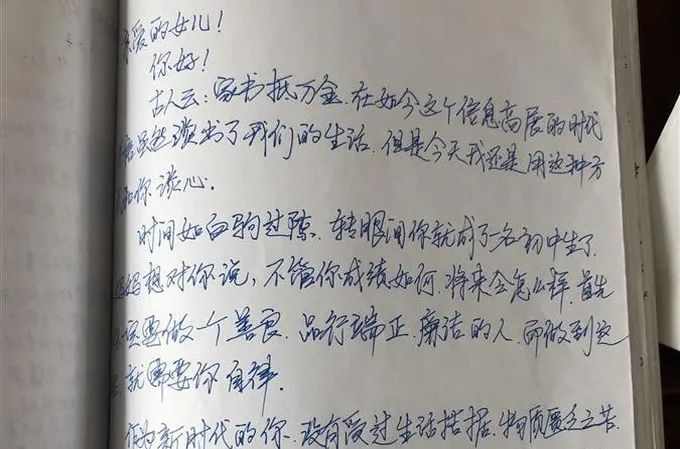 亲爱的女儿！
你好！
古人云：家书抵万金．在如今这个信息高展的时代
书虽然淡出了我们的生活．但是今天我还是用这种方
和你谈心．
时间如白驹过隙．转眼间你就成了一名初中生了．
妈妈想对你说，不管你成绩如何．将来会怎么样．首先
一定要做一个善良．品行端正．廉洁的人．而做到这
就需要你自律．
作为新时代的你．没有受过生活拮据．物质匮乏之苦．